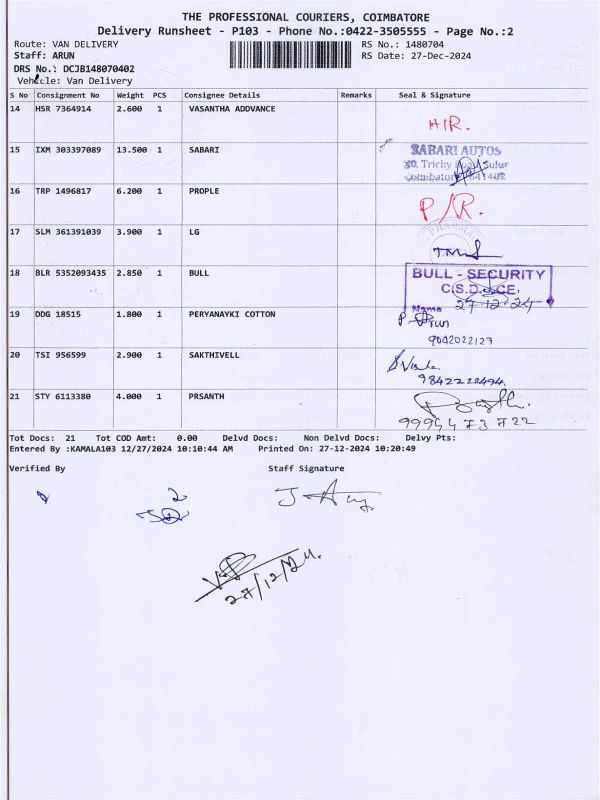 THE PROFESSIONAL COURIERS, COIMBATORE
Delivery Runsheet - P103 - Phone No.:0422-3505555 - Page No.:2
Route: VAN DELIVERY RS No.: 1480704
Staff: ARUN RS Date: 27-Dec-2024
DRS No.: DCJB148070402
Vehicle: Van Delivery
S No Consignment No Weight PCS Consignee Details Remarks Seal & Signature
14 HSR 7364914 2.600 1 VASANTHA ADDVANCE
H/R.
15 IXM 303397089 13.500 1 SABARI SABARI AUTOS
80, Trichy Road, Sulur
Coimbatore 641402
16 TRP 1496817 6.200 1 PROPLE
P/R.
17 SLM 361391039 3.900 1 LG
18 BLR 5352093435 2.850 1 BULL BULL - SECURITY
C.S.D.S.CE.
Name 27-12-24
19 DDG 18515 1.800 1 PERYANAYKI COTTON
P. Arun
9042022127
20 TSI 956599 2.900 1 SAKTHIVELL
9842222494.
21 STY 6113380 4.000 1 PRSANTH
99944 73 722
Tot Docs: 21 Tot COD Amt: 0.00 Delvd Docs: Non Delvd Docs: Delvy Pts:
Entered By :KAMALA103 12/27/2024 10:10:44 AM Printed On: 27-12-2024 10:20:49
Verified By Staff Signature
2
27/12/24.